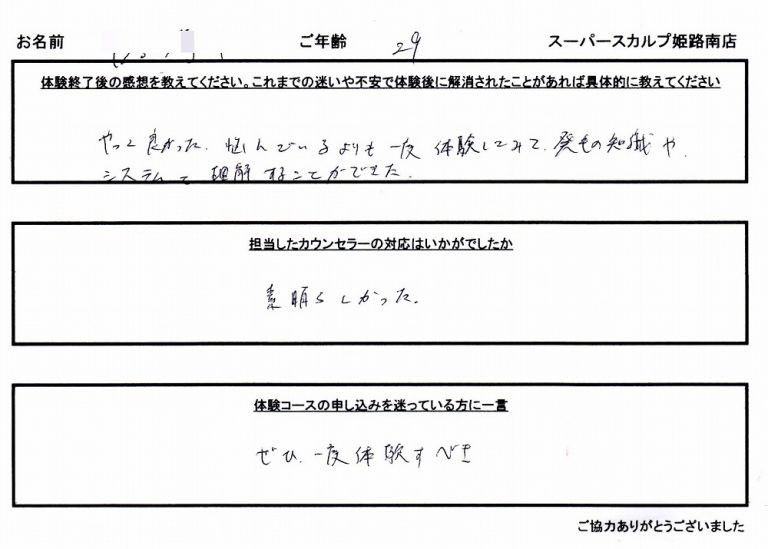 お名前 ご年齢 29 スーパースカルプ姫路南店
体験終了後の感想を教えてください。これまでの迷いや不安で体験後に解消されたことがあれば具体的に教えてください
やって良かった。悩んでいるよりも一度体験してみて、発毛の知識や、
システムで理解することができた。
担当したカウンセラーの対応はいかがでしたか
素晴らしかった。
体験コースの申し込みを迷っている方に一言
ぜひ、一度体験すべき
ご協力ありがとうございました